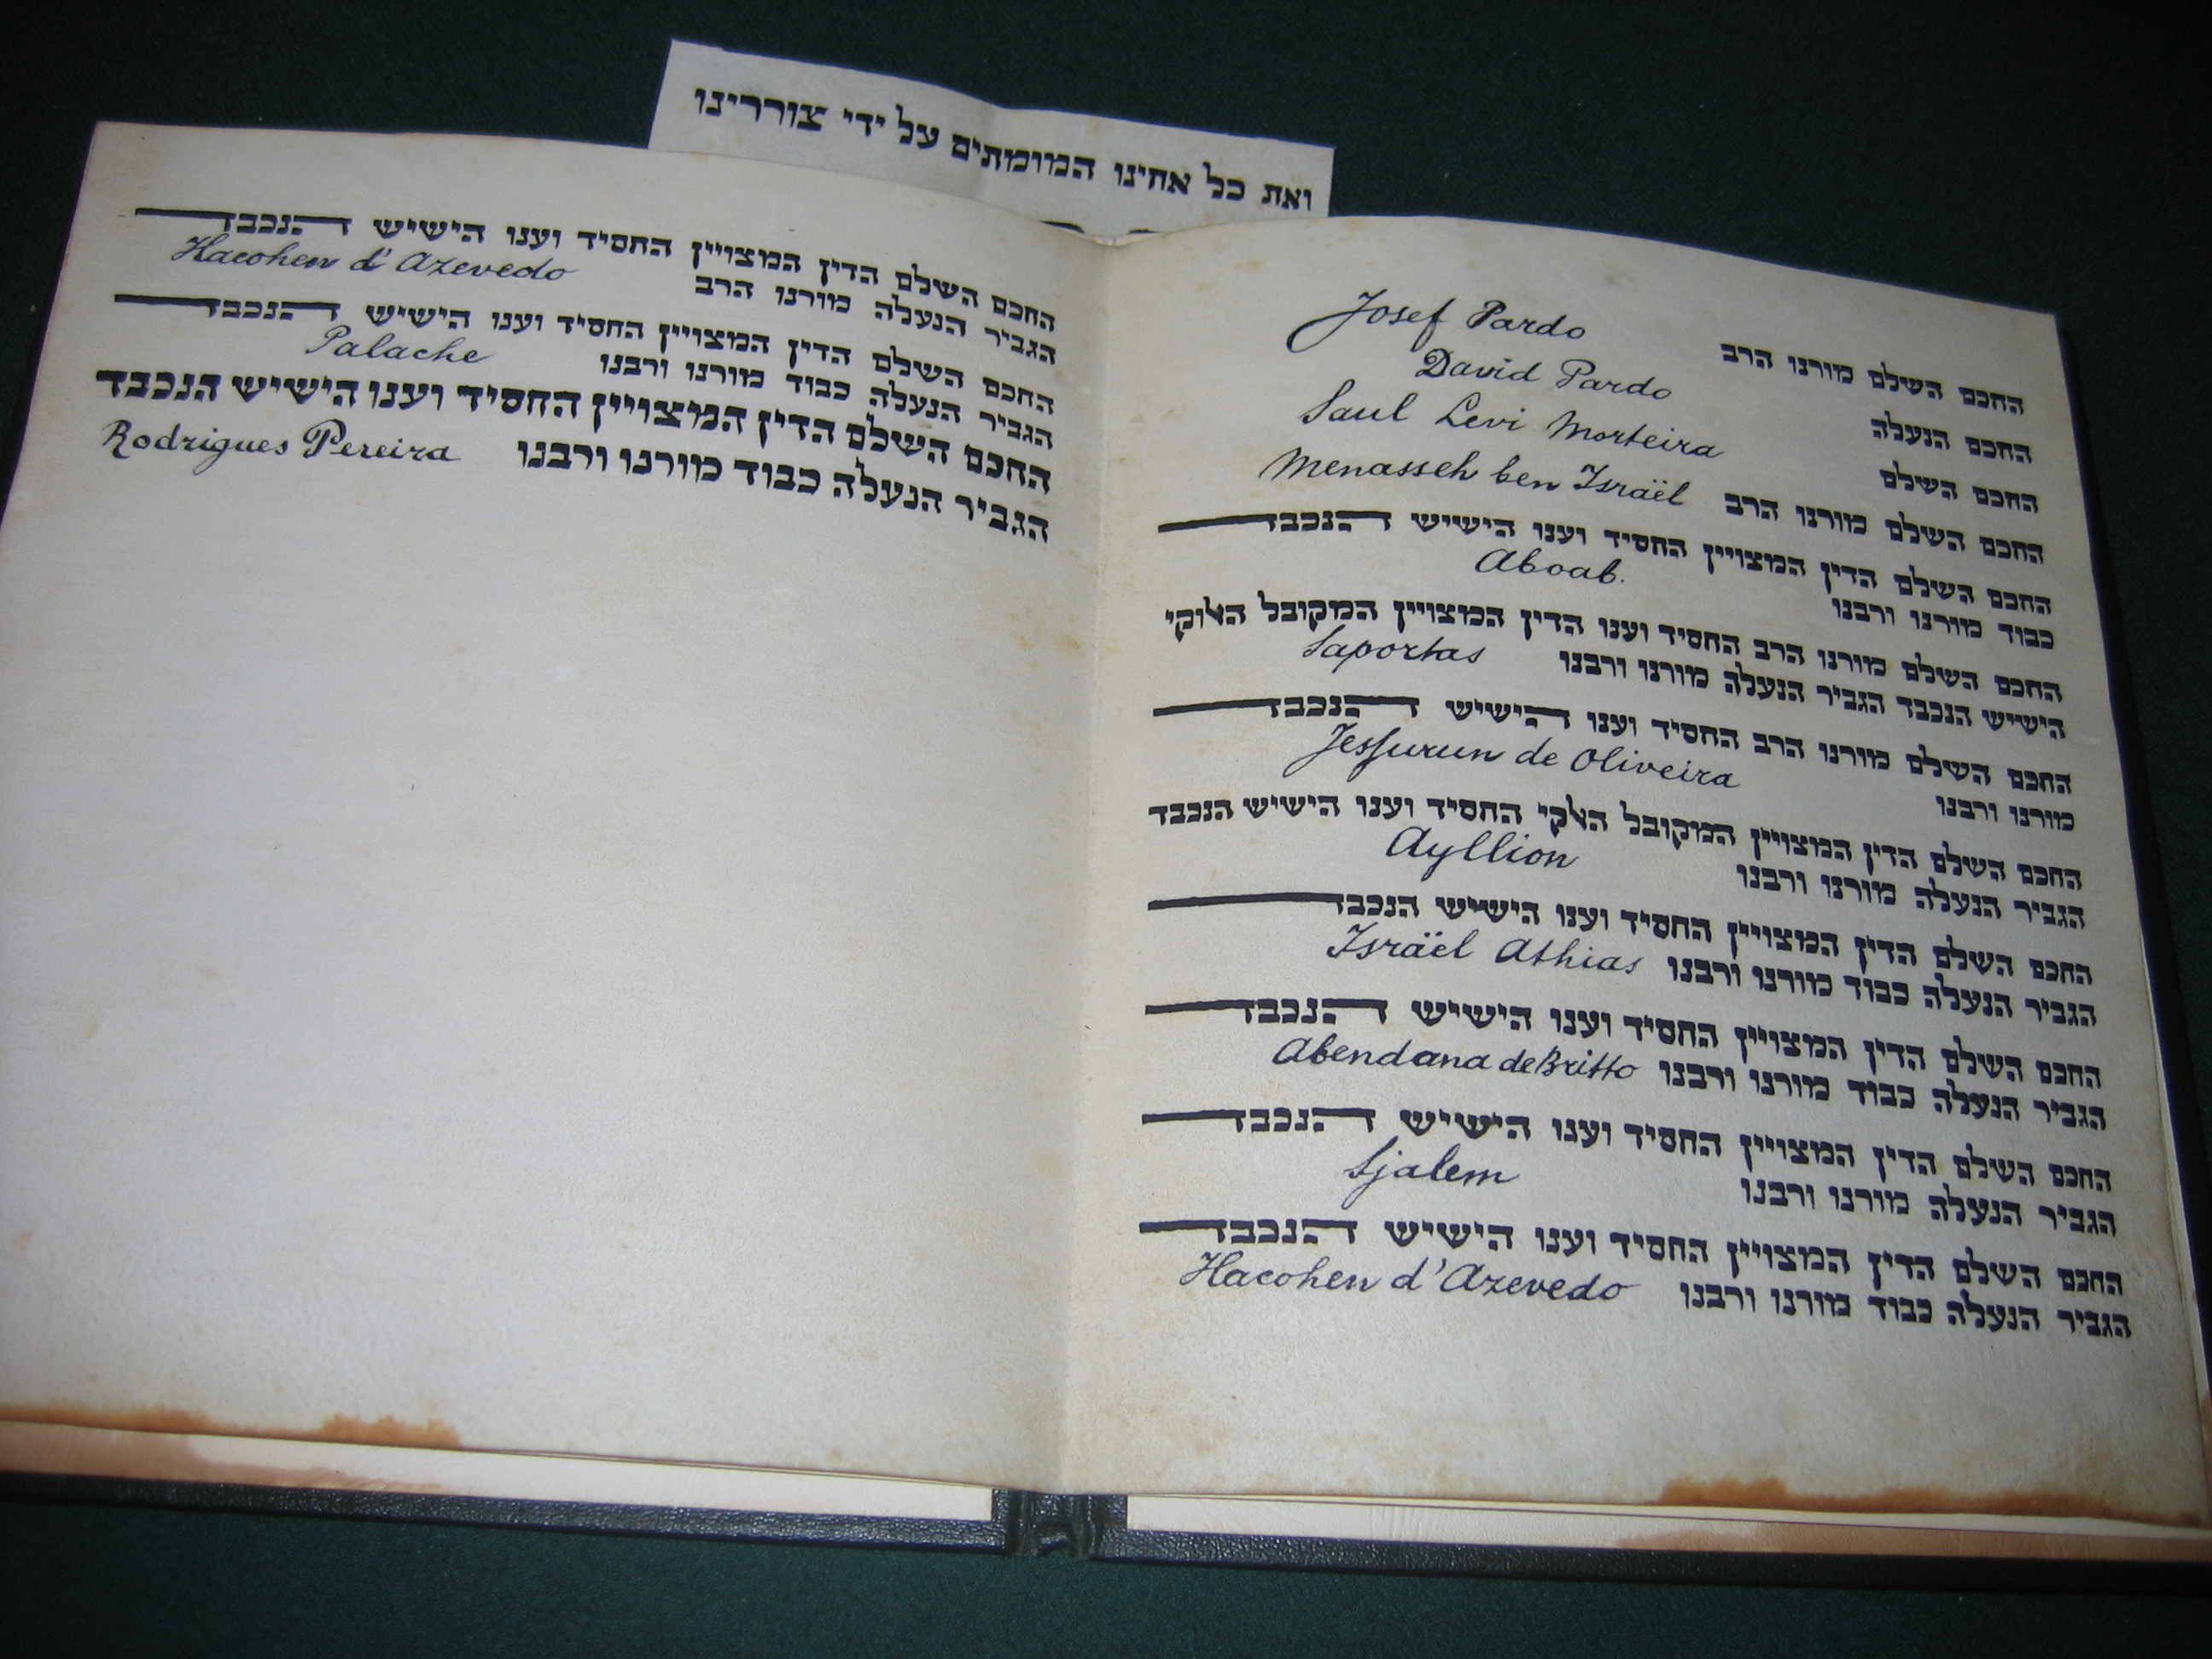 ואת כל אחינו המומתים על ידי צוררינו
החכם השלם מורנו הרב Josef Pardo
החכם הנעלה David Pardo
החכם השלם Saul Levi Morteira
החכם השלם מורנו הרב Menasseh ben Israël
החכם השלם הדין המצויין החסיד וענו הישיש הנכבד
כבוד מורנו ורבנו Aboab.
החכם השלם מורנו הרב החסיד וענו הדין המצויין המקובל האלוקי
הישיש הנכבד הגביר הנעלה מורנו ורבנו Saportas
החכם השלם מורנו הרב החסיד וענו הישיש הנכבד
מורנו ורבנו Jessurun de Oliveira
החכם השלם הדין המצויין המקובל האלקי החסיד וענו הישיש הנכבד
הגביר הנעלה מורנו ורבנו Ayllion
החכם השלם הדין המצויין החסיד וענו הישיש הנכבד
הגביר הנעלה כבוד מורנו ורבנו Israël Athias
החכם השלם הדין המצויין החסיד וענו הישיש הנכבד
הגביר הנעלה כבוד מורנו ורבנו Abendana de Britto
החכם השלם הדין המצויין החסיד וענו הישיש הנכבד
הגביר הנעלה מורנו ורבנו Sjalem
החכם השלם הדין המצויין החסיד וענו הישיש הנכבד
הגביר הנעלה כבוד מורנו ורבנו Hacohen d'Azevedo
החכם השלם הדין המצויין החסיד וענו הישיש הנכבד
הגביר הנעלה מורנו הרב Hacohen d'Azevedo
החכם השלם הדין המצויין החסיד וענו הישיש הנכבד
הגביר הנעלה כבוד מורנו ורבנו Palache
החכם השלם הדין המצויין החסיד וענו הישיש הנכבד
הגביר הנעלה כבוד מורנו ורבנו Rodrigues Pereira